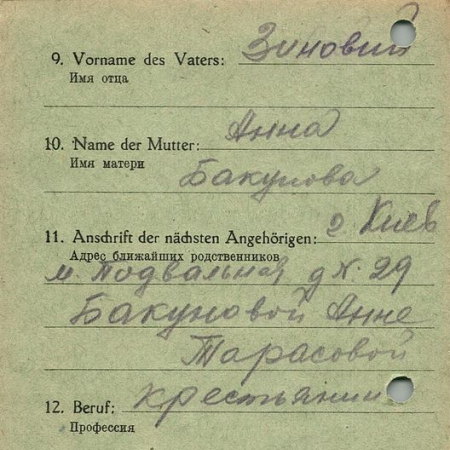 9. Vorname des Vaters: Зиновий
Имя отца
10. Name der Mutter: Анна
Имя матери Бакунова
11. Anschrift der nächsten Angehörigen: г. Киев
Адрес ближайших родственников
м. Подвальная д №: 29
Бакуновой Анне
Тарасовой
12. Beruf: крестьянин
Профессия